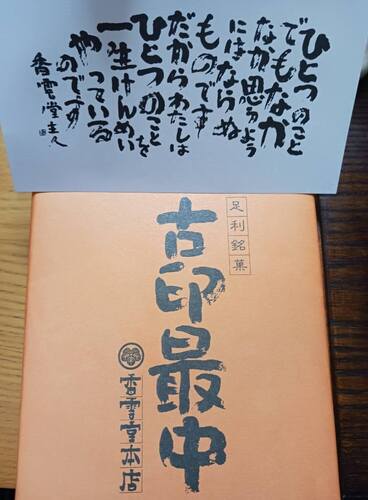 ひとつのこと
でもなかⲕ
なか思うよう
にはならぬ
ものです
だからわたしは
ひとつのことを
一生けんめい
やっている
のです
香雲堂主人
足利銘菓
古印最中
香雲堂本店